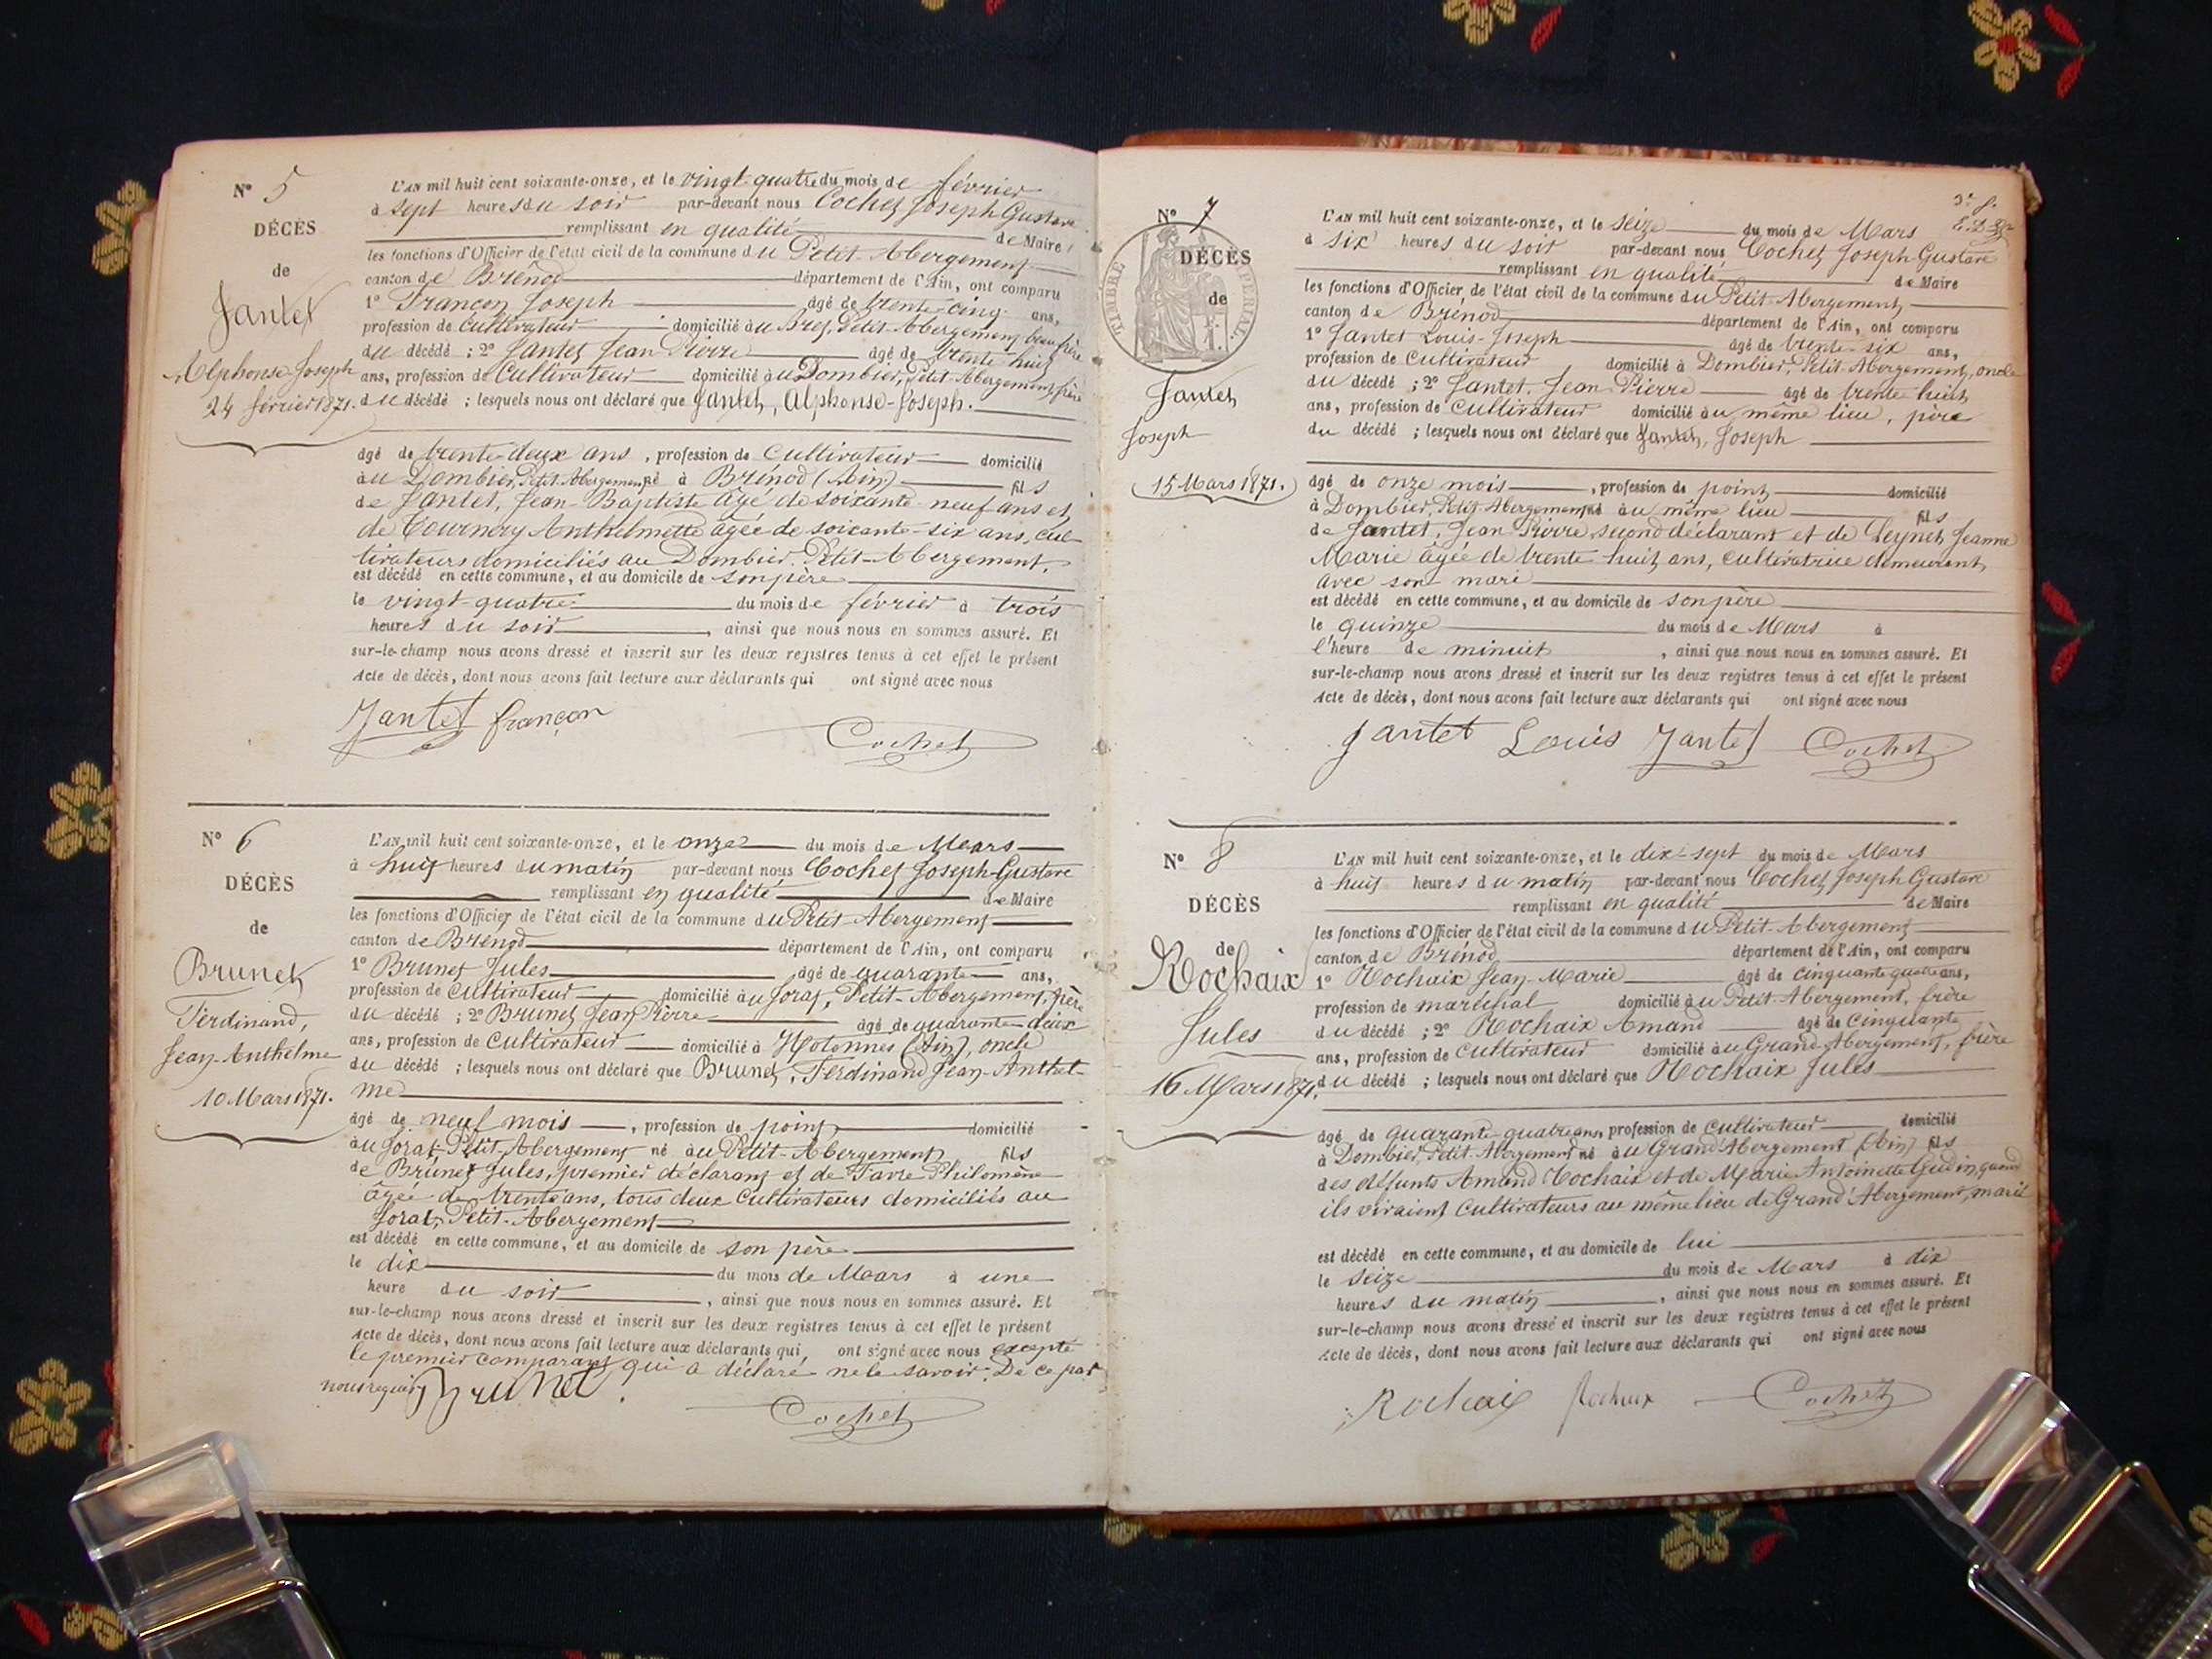 N° 5
DÉCÈS
de
Jantet
Alphonse Joseph
24 février 1871.
L'AN mil huit cent soixante-onze, et le vingt quatre du mois de février
à sept heures du soir par-devant nous Cochet Joseph Gustave
remplissant en qualité de Maire
les fonctions d'Officier de l'état civil de la commune du Petit-Abergement
canton de Brénod département de l'Ain, ont comparu
1° Françon Joseph âgé de trente-cinq ans,
profession de Cultivateur domicilié au Bref, Petit-Abergement, beau frère
du décédé ; 2° Jantet Jean-Pierre âgé de trente-huit
ans, profession de Cultivateur domicilié au Dombier, Petit-Abergement, frère
du décédé ; lesquels nous ont déclaré que Jantet, Alphonse-Joseph.
âgé de trente-deux ans, profession de Cultivateur domicilié
au Dombier, Petit-Abergement né à Brénod (Ain) fils
de Jantet, Jean-Baptiste âgé de soixante neuf ans et
de Tournery Anthelmette âgée de soixante-six ans, cul-
tivateurs domiciliés au Dombier, Petit-Abergement.
est décédé en cette commune, et au domicile de son père
le vingt-quatre du mois de février à trois
heures du soir, ainsi que nous nous en sommes assuré. Et
sur-le-champ nous avons dressé et inscrit sur les deux registres tenus à cet effet le présent
Acte de décès, dont nous avons fait lecture aux déclarants qui ont signé avec nous
Jantet françon Cochet
N° 6
DÉCÈS
de
Brunet
Ferdinand,
Jean-Anthelme
10 Mars 1871.
L'AN mil huit cent soixante-onze, et le onze du mois de Mars
à huit heures du matin par-devant nous Cochet Joseph-Gustave
remplissant en qualité de Maire
les fonctions d'Officier de l'état civil de la commune du Petit-Abergement
canton de Brénod département de l'Ain, ont comparu
1° Brunet Jules âgé de quarante ans,
profession de Cultivateur domicilié au Jorat, Petit-Abergement, père
du décédé ; 2° Brunet Jean Pierre âgé de quarante-deux
ans, profession de Cultivateur domicilié à Hotonnes (Ain), oncle
du décédé ; lesquels nous ont déclaré que Brunet, Ferdinand Jean-Anthel-
me
âgé de neuf mois, profession de point domicilié
au Jorat Petit-Abergement né au Petit-Abergement fils
de Brunet Jules, premier déclarant et de Favre Philomène
âgée de trente ans, tous deux Cultivateurs domiciliés au
Jorat, Petit-Abergement
est décédé en cette commune, et au domicile de son père
le dix du mois de Mars à une
heure du soir, ainsi que nous nous en sommes assuré. Et
sur-le-champ nous avons dressé et inscrit sur les deux registres tenus à cet effet le présent
Acte de décès, dont nous avons fait lecture aux déclarants qui ont signé avec nous excepté
le premier comparant qui a déclaré ne le savoir. De ce par
nous requis Brunet Cochet
3e f.
N° 7
TIMBRE IMPÉRIAL
DÉCÈS
de
Jantet
Joseph
15 Mars 1871.
L'AN mil huit cent soixante-onze, et le seize du mois de Mars
à six heures du soir par-devant nous Cochet Joseph-Gustave
remplissant en qualité de Maire
les fonctions d'Officier de l'état civil de la commune du Petit-Abergement
canton de Brénod département de l'Ain, ont comparu
1° Jantet Louis-Joseph âgé de trente-six ans,
profession de Cultivateur domicilié à Dombier, Petit-Abergement, oncle
du décédé ; 2° Jantet, Jean-Pierre âgé de trente huit
ans, profession de Cultivateur domicilié au même lieu, père
du décédé ; lesquels nous ont déclaré que Jantet, Joseph
âgé de onze mois, profession de point domicilié
à Dombier, Petit-Abergement né au même lieu fils
de Jantet, Jean Pierre, second déclarant et de Peynet Jeanne
Marie âgée de trente huit ans, cultivatrice demeurant
avec son mari
est décédé en cette commune, et au domicile de son père
le quinze du mois de Mars à
l'heure de minuit, ainsi que nous nous en sommes assuré. Et
sur-le-champ nous avons dressé et inscrit sur les deux registres tenus à cet effet le présent
Acte de décès, dont nous avons fait lecture aux déclarants qui ont signé avec nous
Jantet Louis Jantet Cochet
N° 8
DÉCÈS
de
Rochaix
Jules
16 Mars 1871.
L'AN mil huit cent soixante-onze, et le dix-sept du mois de Mars
à huit heures du matin par-devant nous Cochet Joseph Gustave
remplissant en qualité de Maire
les fonctions d'Officier de l'état civil de la commune du Petit-Abergement
canton de Brénod département de l'Ain, ont comparu
1° Rochaix Jean-Marie âgé de cinquante quatre ans,
profession de maréchal domicilié au Petit-Abergement, frère
du décédé ; 2° Rochaix Amand âgé de Cinquante
ans, profession de Cultivateur domicilié au Grand-Abergement, frère
du décédé ; lesquels nous ont déclaré que Rochaix Jules
âgé de quarante-quatre ans, profession de Cultivateur domicilié
à Dombier, Petit-Abergement né au Grand Abergement (Ain) fils
des défunts Amand Rochaix et de Marie Antoinette Gudin, quand
ils vivaient Cultivateurs au même lieu de Grand Abergement, marié
est décédé en cette commune, et au domicile de lui
le seize du mois de Mars à dix
heures du matin, ainsi que nous nous en sommes assuré. Et
sur-le-champ nous avons dressé et inscrit sur les deux registres tenus à cet effet le présent
Acte de décès, dont nous avons fait lecture aux déclarants qui ont signé avec nous
Rochaix Rochaix Cochet